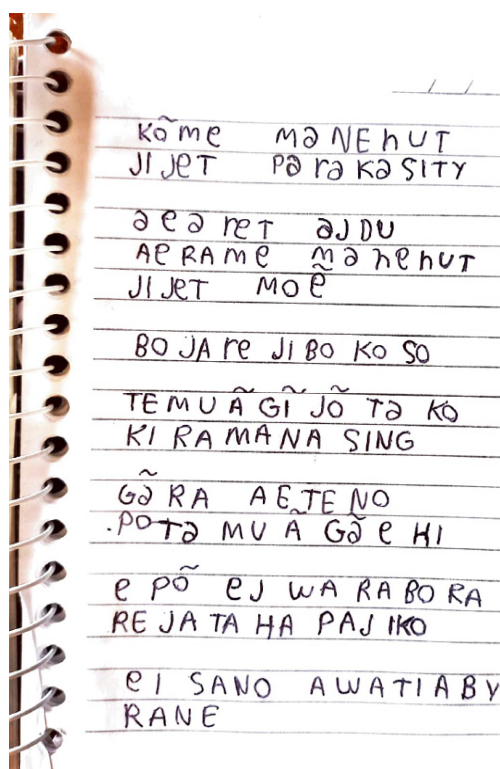 Kõme mәNEhUT
JIJeT PәrәKәSITY
әeәreT әJDU
AeRAMe mәhehUT
JIJeT MOẽ
BOJAre JIBO KO SO
TEMUÃ GĨ JÕ Tә KO
KI RAMANA SING
Gә̃RA AETENO
.POTә MUÃ Gә̃e HI
e põ eJ WARABORA
REJATAHA PAJIKO
eI SANO AWATIABY
RANE